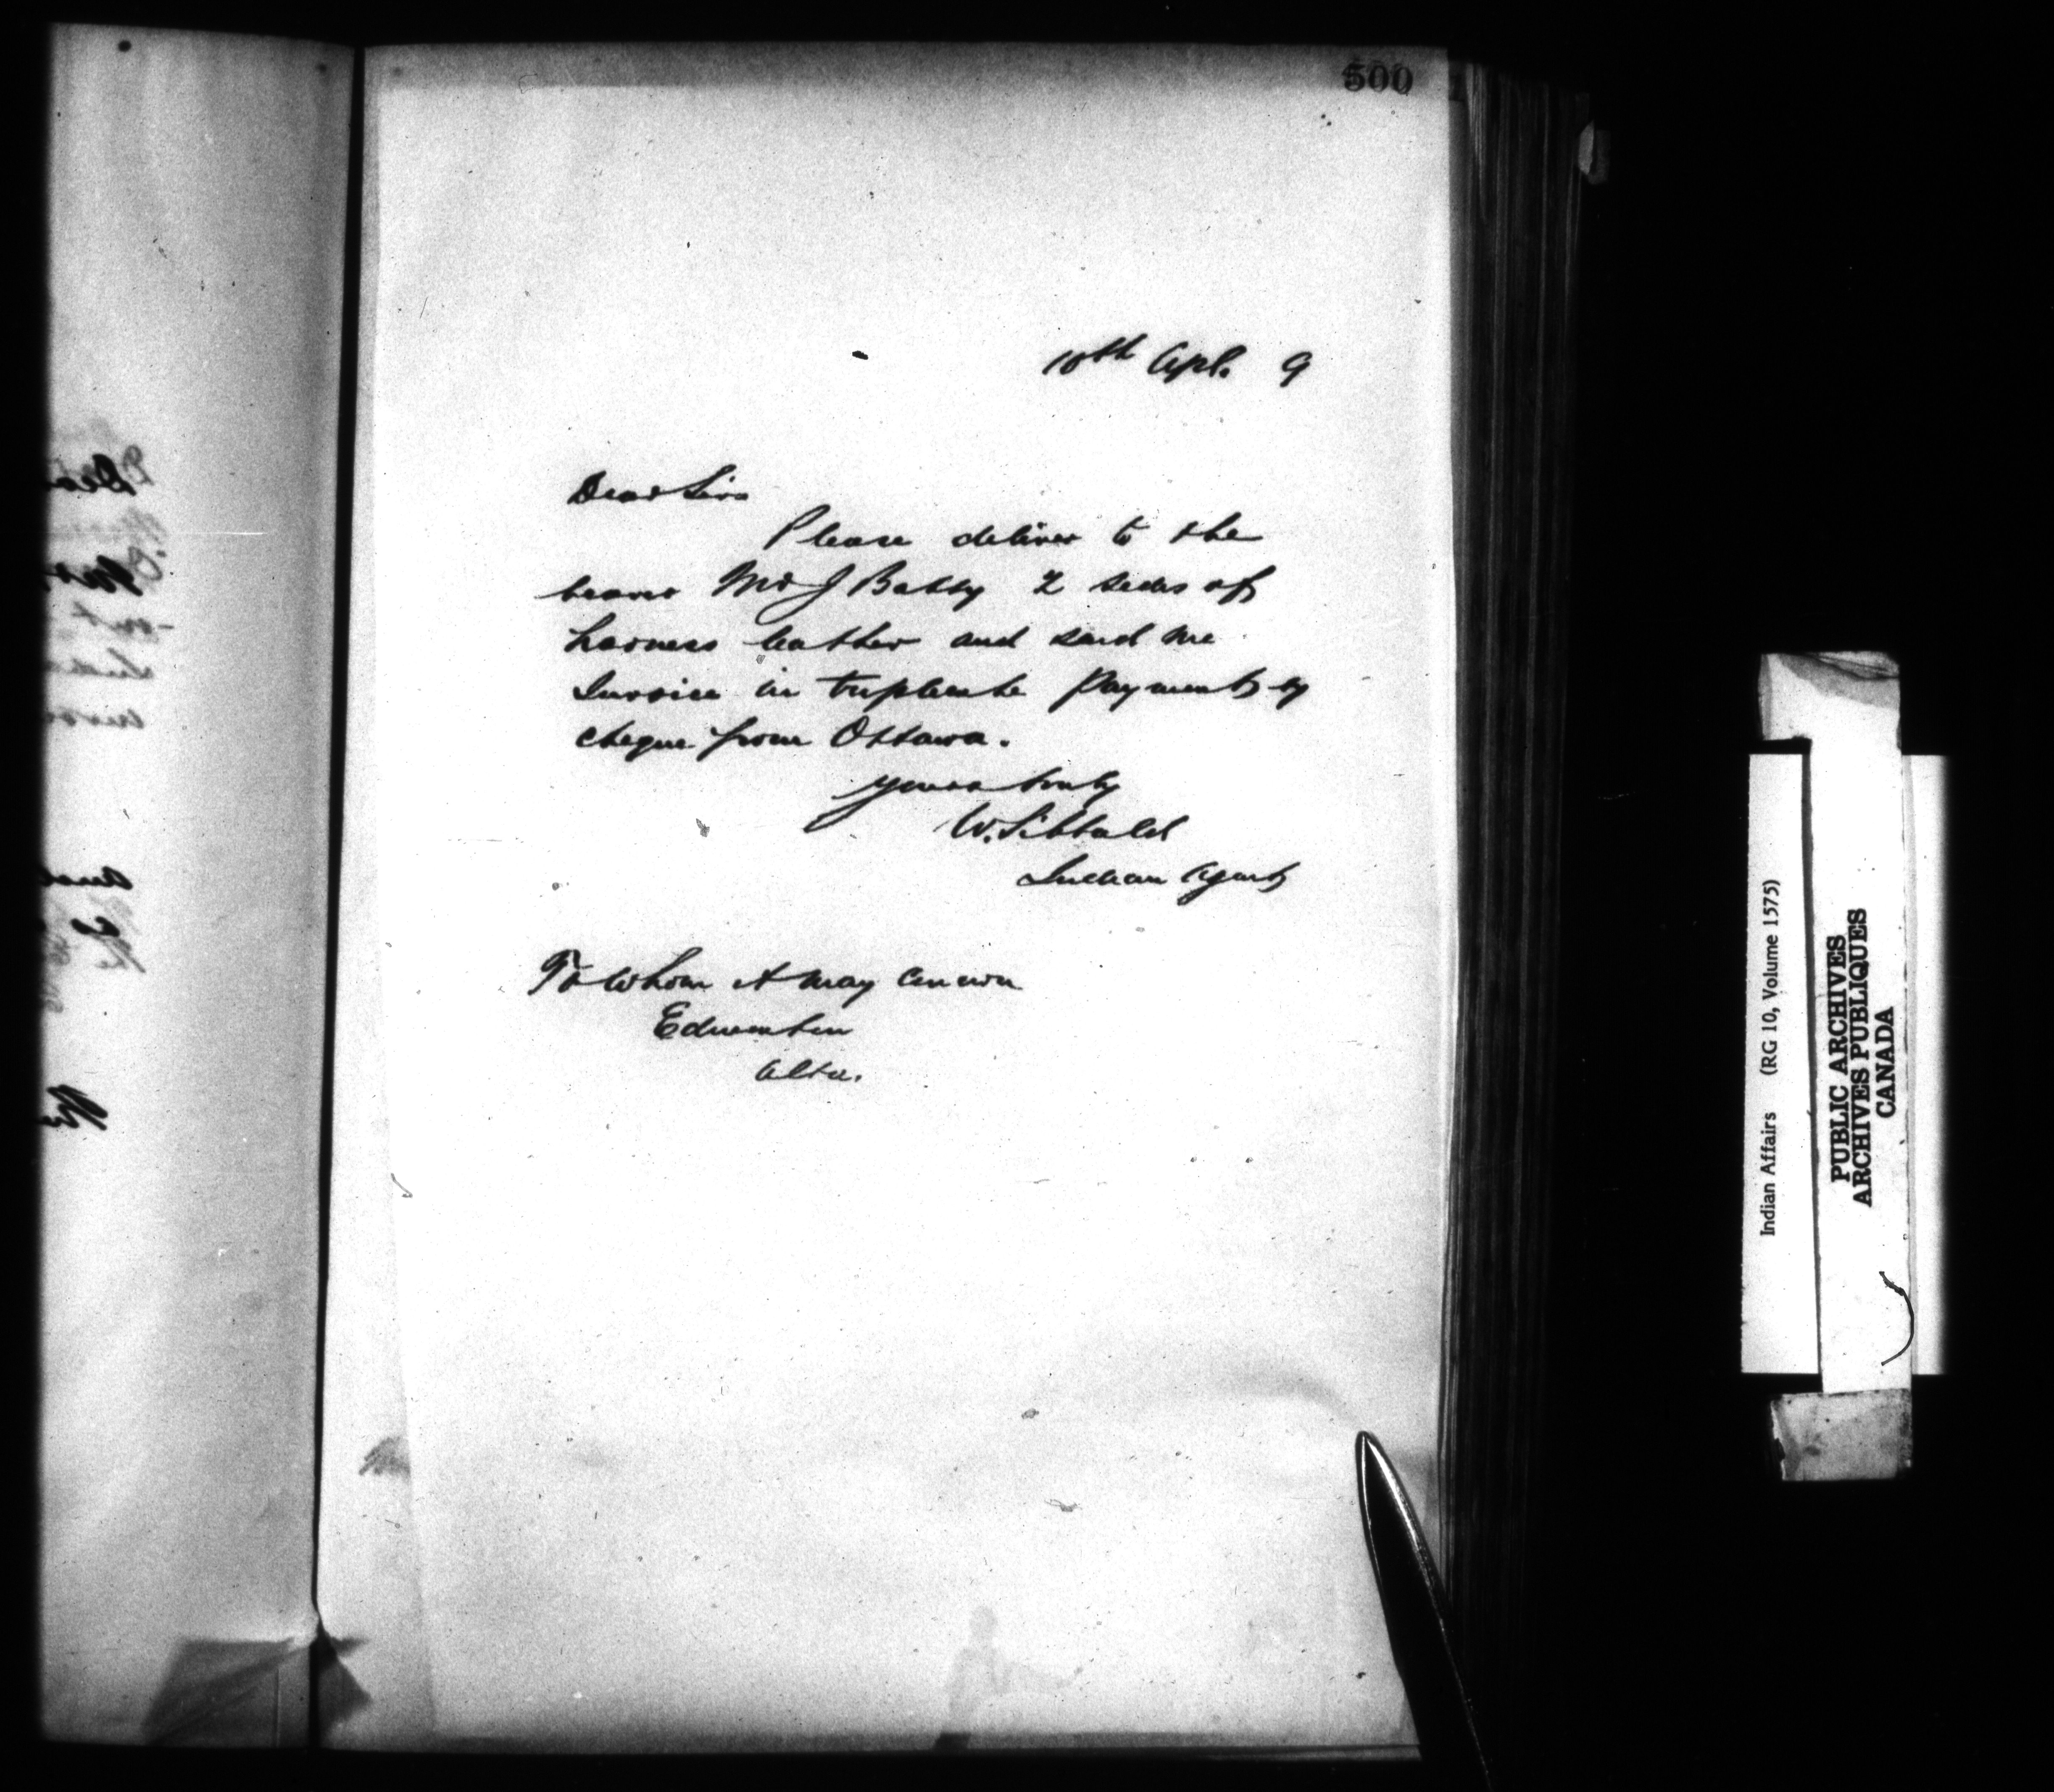 500
10th Apl. 9
Dear Sirs
Please deliver to the
bearer Mr J Batty 2 sides of
harness leather and send me
Invoice in triplicate Payment by
cheque from Ottawa.
Yours truly
W. Sibbald
Indian Agent
To Whom it may concern
Edmonton
Alta.
Indian Affairs (RG 10, Volume 1575)
PUBLIC ARCHIVES
ARCHIVES PUBLIQUES
CANADA